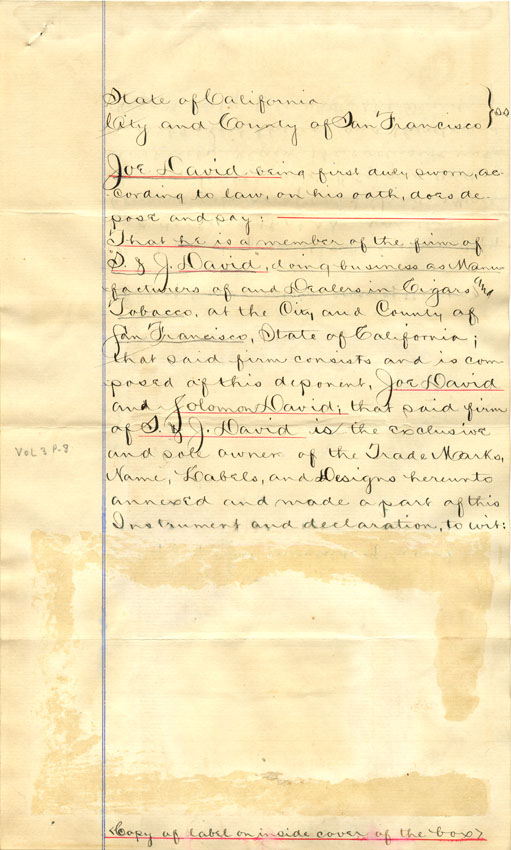 State of California
City and County of San Francisco } ss
Joe David being first duly sworn, ac-
cording to law, on his oath, does de-
pose and say:
That he is a member of the firm of
"S. & J. David", doing business as Manu-
facturers of and Dealers in Cigars and
Tobacco, at the City and County of
San Francisco, State of California;
that said firm consists and is com
posed of this deponent, Joe David
and Solomon David; that said firm
of S. & J. David is the exclusive
and sole owner of the Trade Marks,
Name, Labels, and Designs hereunto
annexed and made a part of this
Instrument and declaration, to wit:
Vol 3 P. 8
<Copy of label on inside cover of the box>